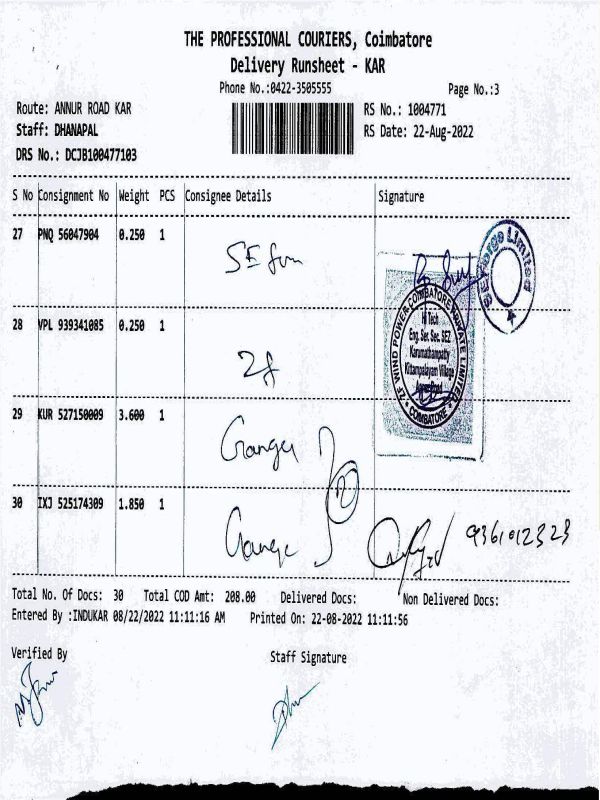 THE PROFESSIONAL COURIERS, Coimbatore
Delivery Runsheet - KAR
Phone No.:0422-3505555
Page No.:3
Route: ANNUR ROAD KAR
RS No.: 1004771
Staff: DHANAPAL
RS Date: 22-Aug-2022
DRS No.: DCJB100477103
S No Consignment No Weight PCS Consignee Details Signature
27 PNQ 56047904 0.250 1
SE
SE Forge Limited
28 VPL 939341085 0.250 1
ZF
ZF WIND POWER COIMBATORE PRIVATE LIMITED
Hi Tech
Eng. Ser. Sec. SEZ
Karumathampatty
Kittampalayam Village
COIMBATORE
29 KUR 527150009 3.600 1
Ganga
30 IXJ 525174309 1.850 1
Ganga
9361012323
Total No. Of Docs: 30 Total COD Amt: 208.00 Delivered Docs: Non Delivered Docs:
Entered By :INDUKAR 08/22/2022 11:11:16 AM Printed On: 22-08-2022 11:11:56
Verified By
Staff Signature